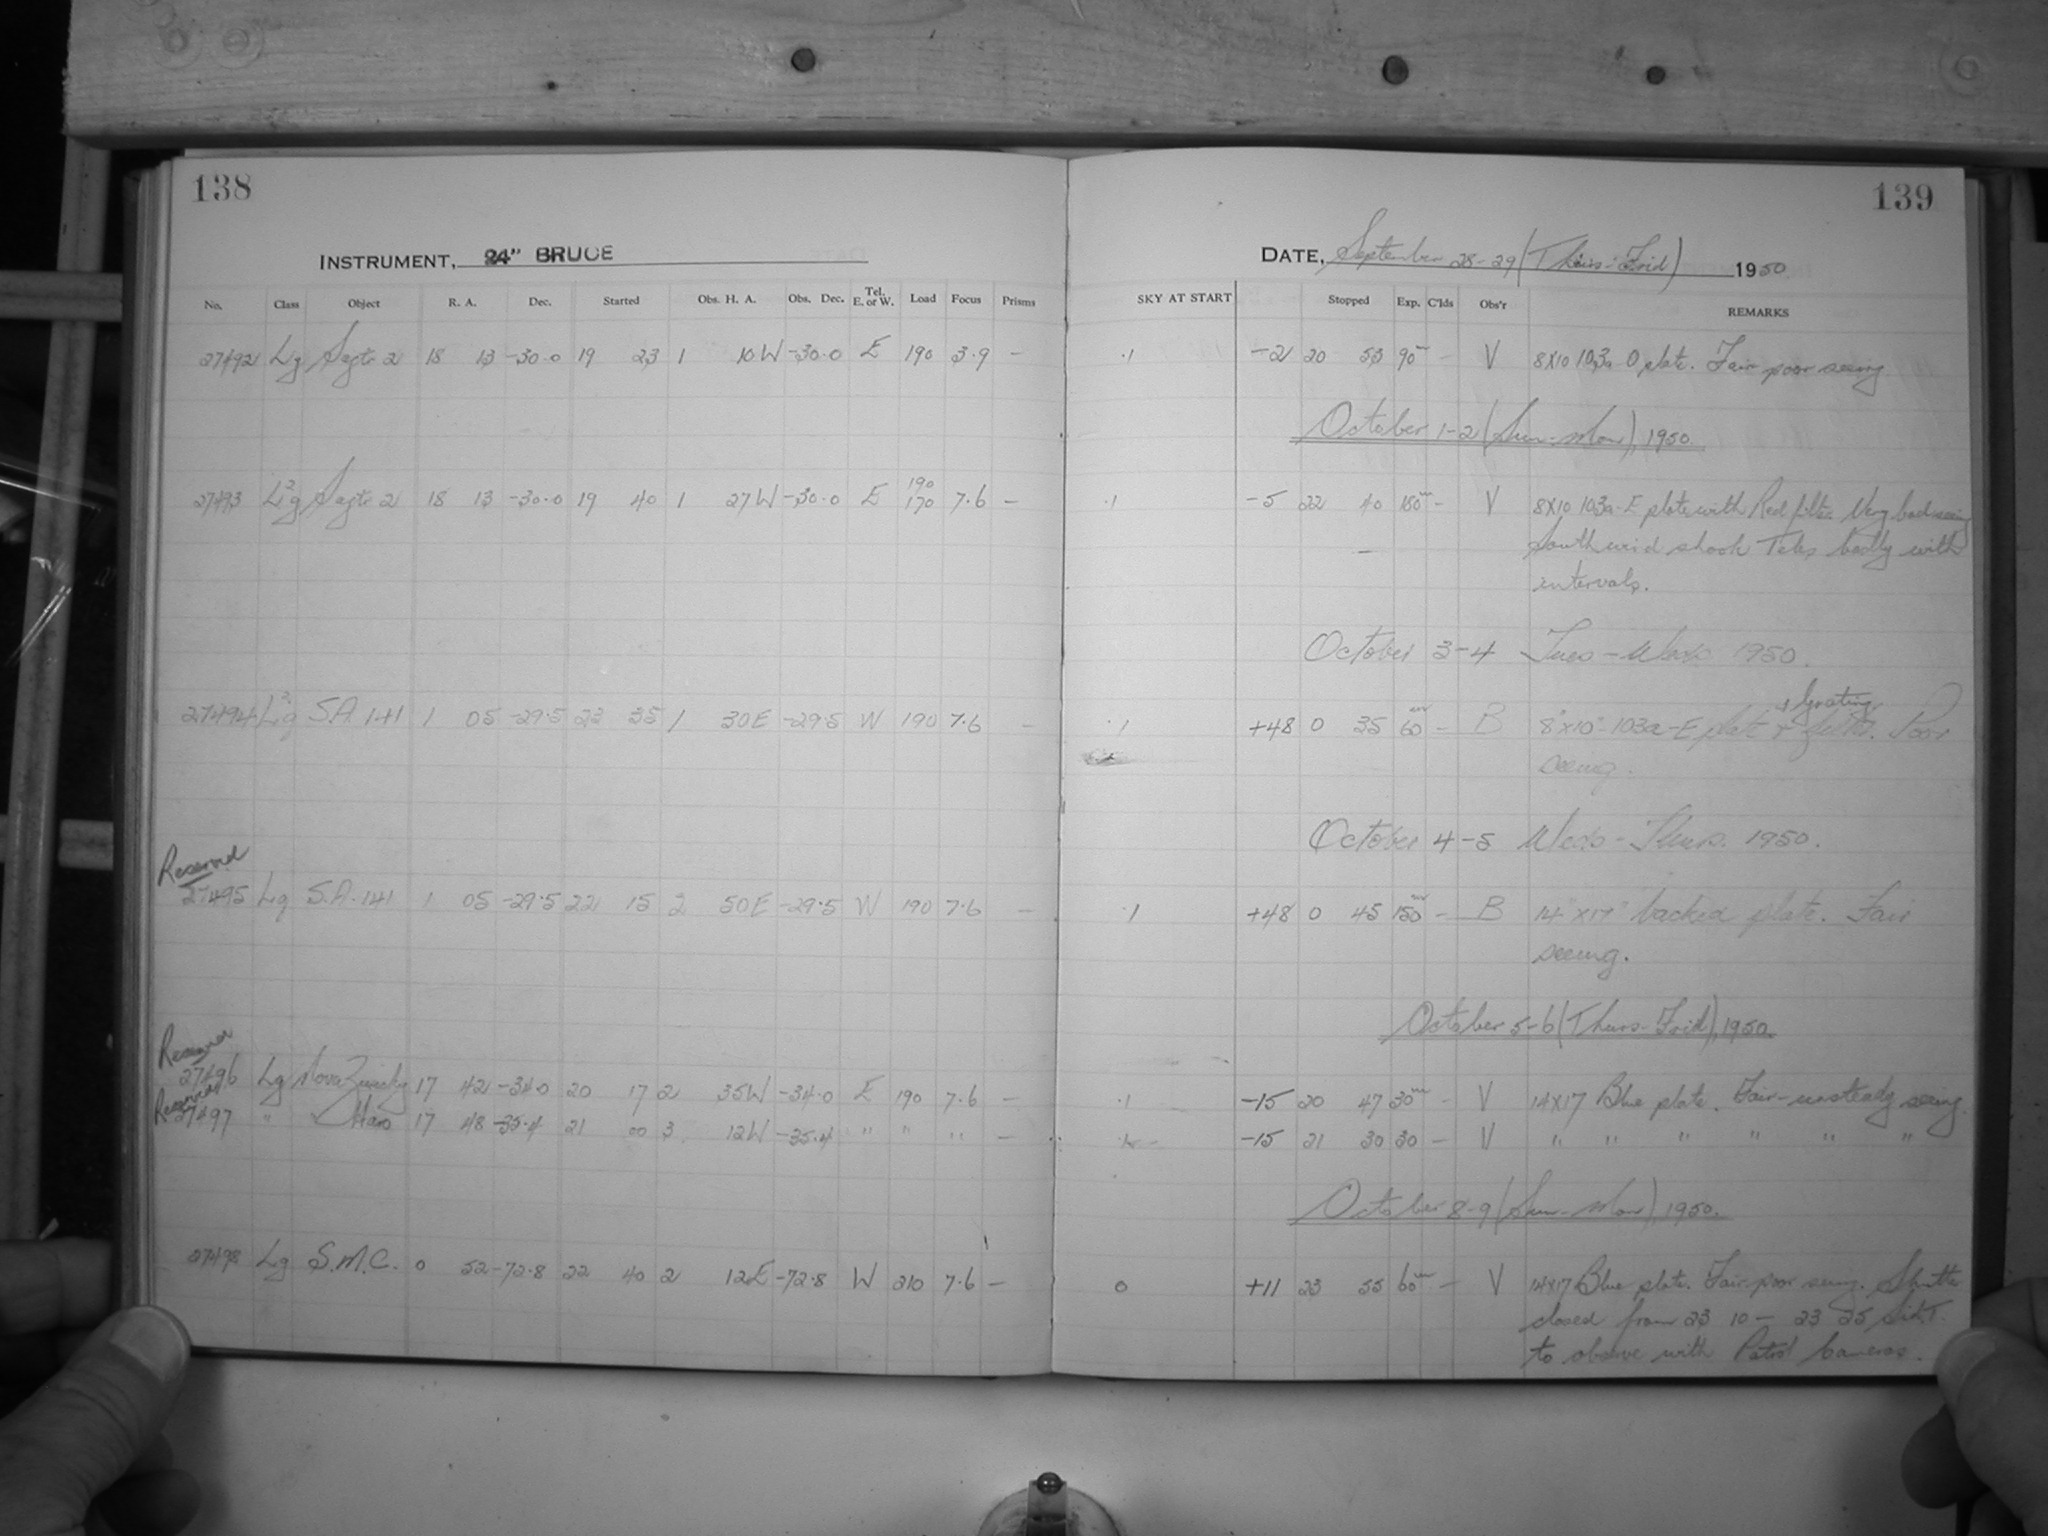 138
139
INSTRUMENT, 24" BRUCE
DATE, September 28-29 (Thurs-Frid) 1950
No. Class Object R. A. Dec. Started Obs. H. A. Obs. Dec. Tel. E. or W. Load Focus Prisms SKY AT START Stopped Exp. C'lds Obs'r REMARKS
27492 Lg Sagtr 2 18 13 -30.0 19 23 1 10W -30.0 E 190 3.9 - .1 -21 20 53 90m - V 8X10 103a-O plate. Fair-poor seeing
October 1-2 (Sun-Mon), 1950.
27493 L²g Sagtr 2 18 13 -30.0 19 40 1 27W -30.0 E 190 170 7.6 - .1 -5 22 40 180m - V 8X10 103a-E plate with Red filter. Very bad seeing
South wind shook Teles badly with
intervals.
October 3-4 Tues-Weds 1950.
27494 L²g S.A. 141 1 05 -29.5 23 35 1 30E -29.5 W 190 7.6 - .1 +48 0 35 60m - B 8"x10" 103a-E plate + filter + Grating. Poor
seeing.
October 4-5 Weds-Thurs. 1950.
Reserved
27495 Lg S.A. 141 1 05 -29.5 22 15 2 50E -29.5 W 190 7.6 - .1 +48 0 45 150m - B 14"x17" backed plate. Fair
seeing.
October 5-6 (Thurs-Frid), 1950.
Reserved
27496 Lg Nova Zwicky 17 42 -34.0 20 17 2 35W -34.0 E 190 7.6 - .1 -15 20 47 30m - V 14X17 Blue plate. Fair-unsteady seeing.
Reserved
27497 " Haro 17 48 -35.4 21 00 3 12W -35.4 " " " - -15 21 30 30 - V " " " " " "
October 8-9 (Sun-Mon), 1950.
27498 Lg S.M.C. 0 52 -72.8 22 40 2 12E -72.8 W 210 7.6 - 0 +11 23 55 60m - V 14X17 Blue plate. Fair-poor seeing. Shutter
closed from 23 10 - 23 25 Sid.T.
to observe with Patrol Cameras.